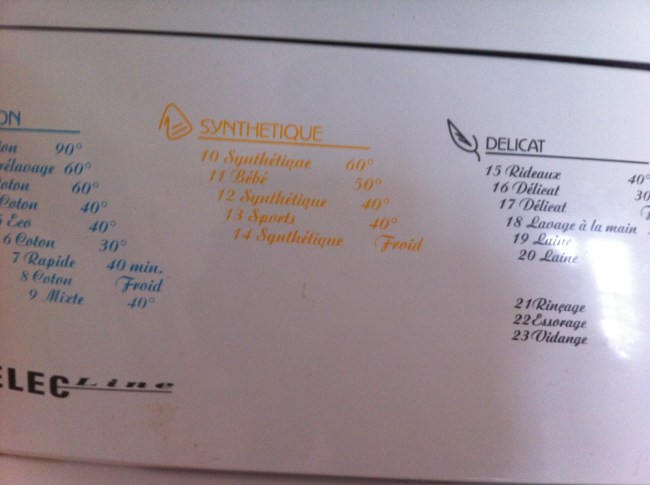 ON
on 90°
rélavage 60°
oton 60°
Coton 40°
5 Eco 40°
6 Coton 30°
7 Rapide 40 min.
8 Coton Froid
9 Mixte 40°
ELEC Line
SYNTHETIQUE
10 Synthétique 60°
11 Bébé 50°
12 Synthétique 40°
13 Sports 40°
14 Synthétique Froid
DELICAT
15 Rideaux 40°
16 Délicat 30
17 Délicat F
18 Lavage à la main
19 Laine
20 Laine
21 Rinçage
22 Essorage
23 Vidange